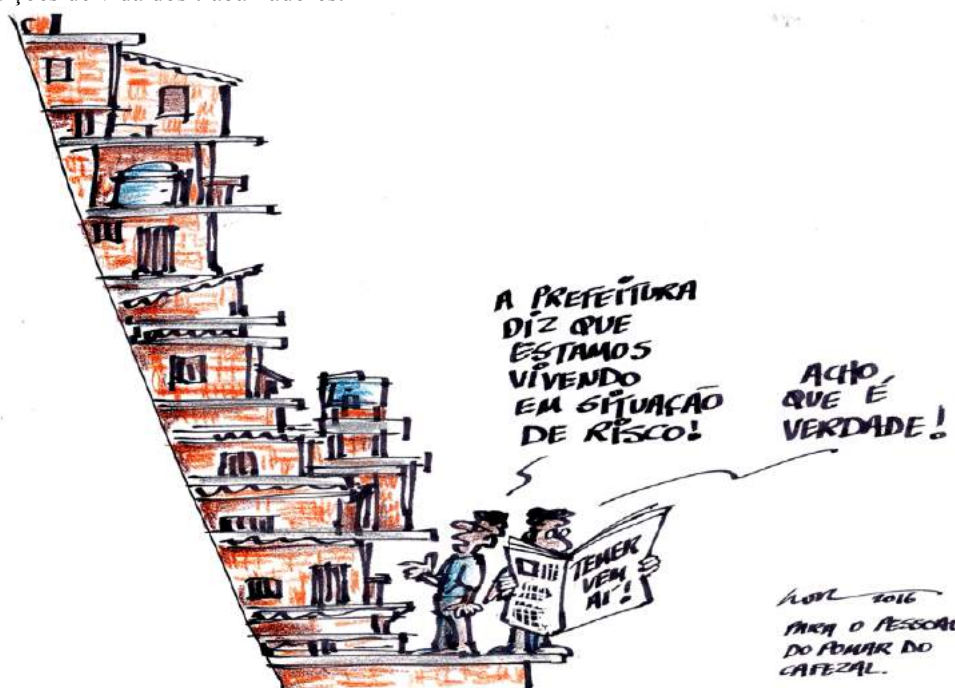 A PREFEITURA
DIZ QUE
ESTAMOS
VIVENDO
EM SITUAÇÃO
DE RISCO!
ACHO
QUE É
VERDADE!
TEMER
VEM
AÍ!
2016
PARA O PESSOAL
DO POMAR DO
CAFEZAL.